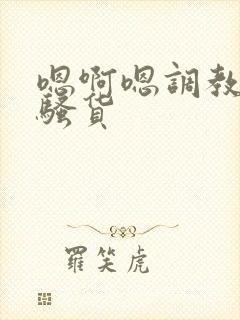 嗯啊嗯調教
騷貨
羅笑虎